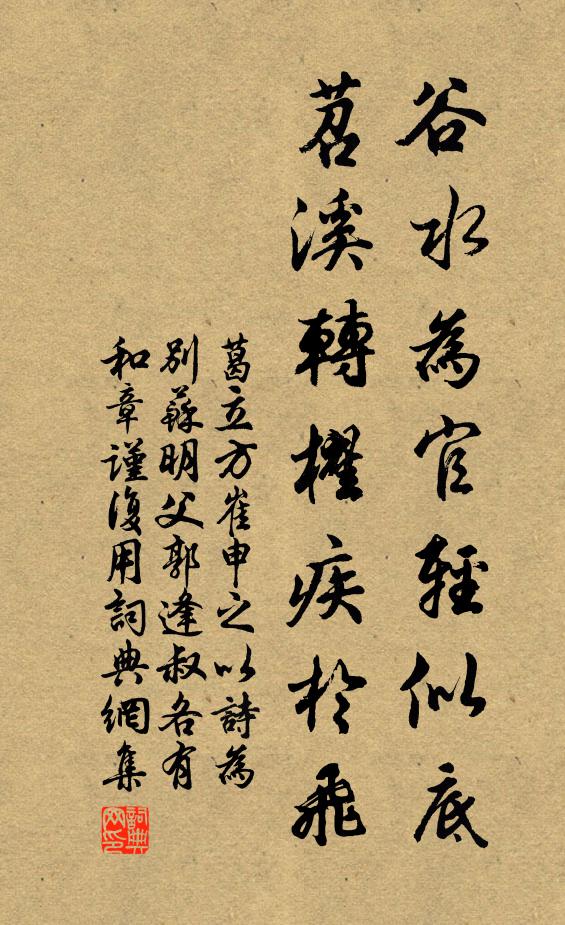 谷水為官輕似底
苕溪轉櫂疾於飛
葛立方崔申之以詩為
別蘇明父郭逢叔各有
和章謹復用詞典網集
詞典网印